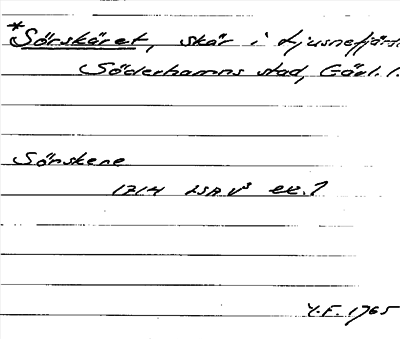 *Sörskäret, skär i Ljusnefjärd
Söderhamns stad, Gävl. l.
Sörskene
1714 LSA V³ ek. 1
Y.F. 1965